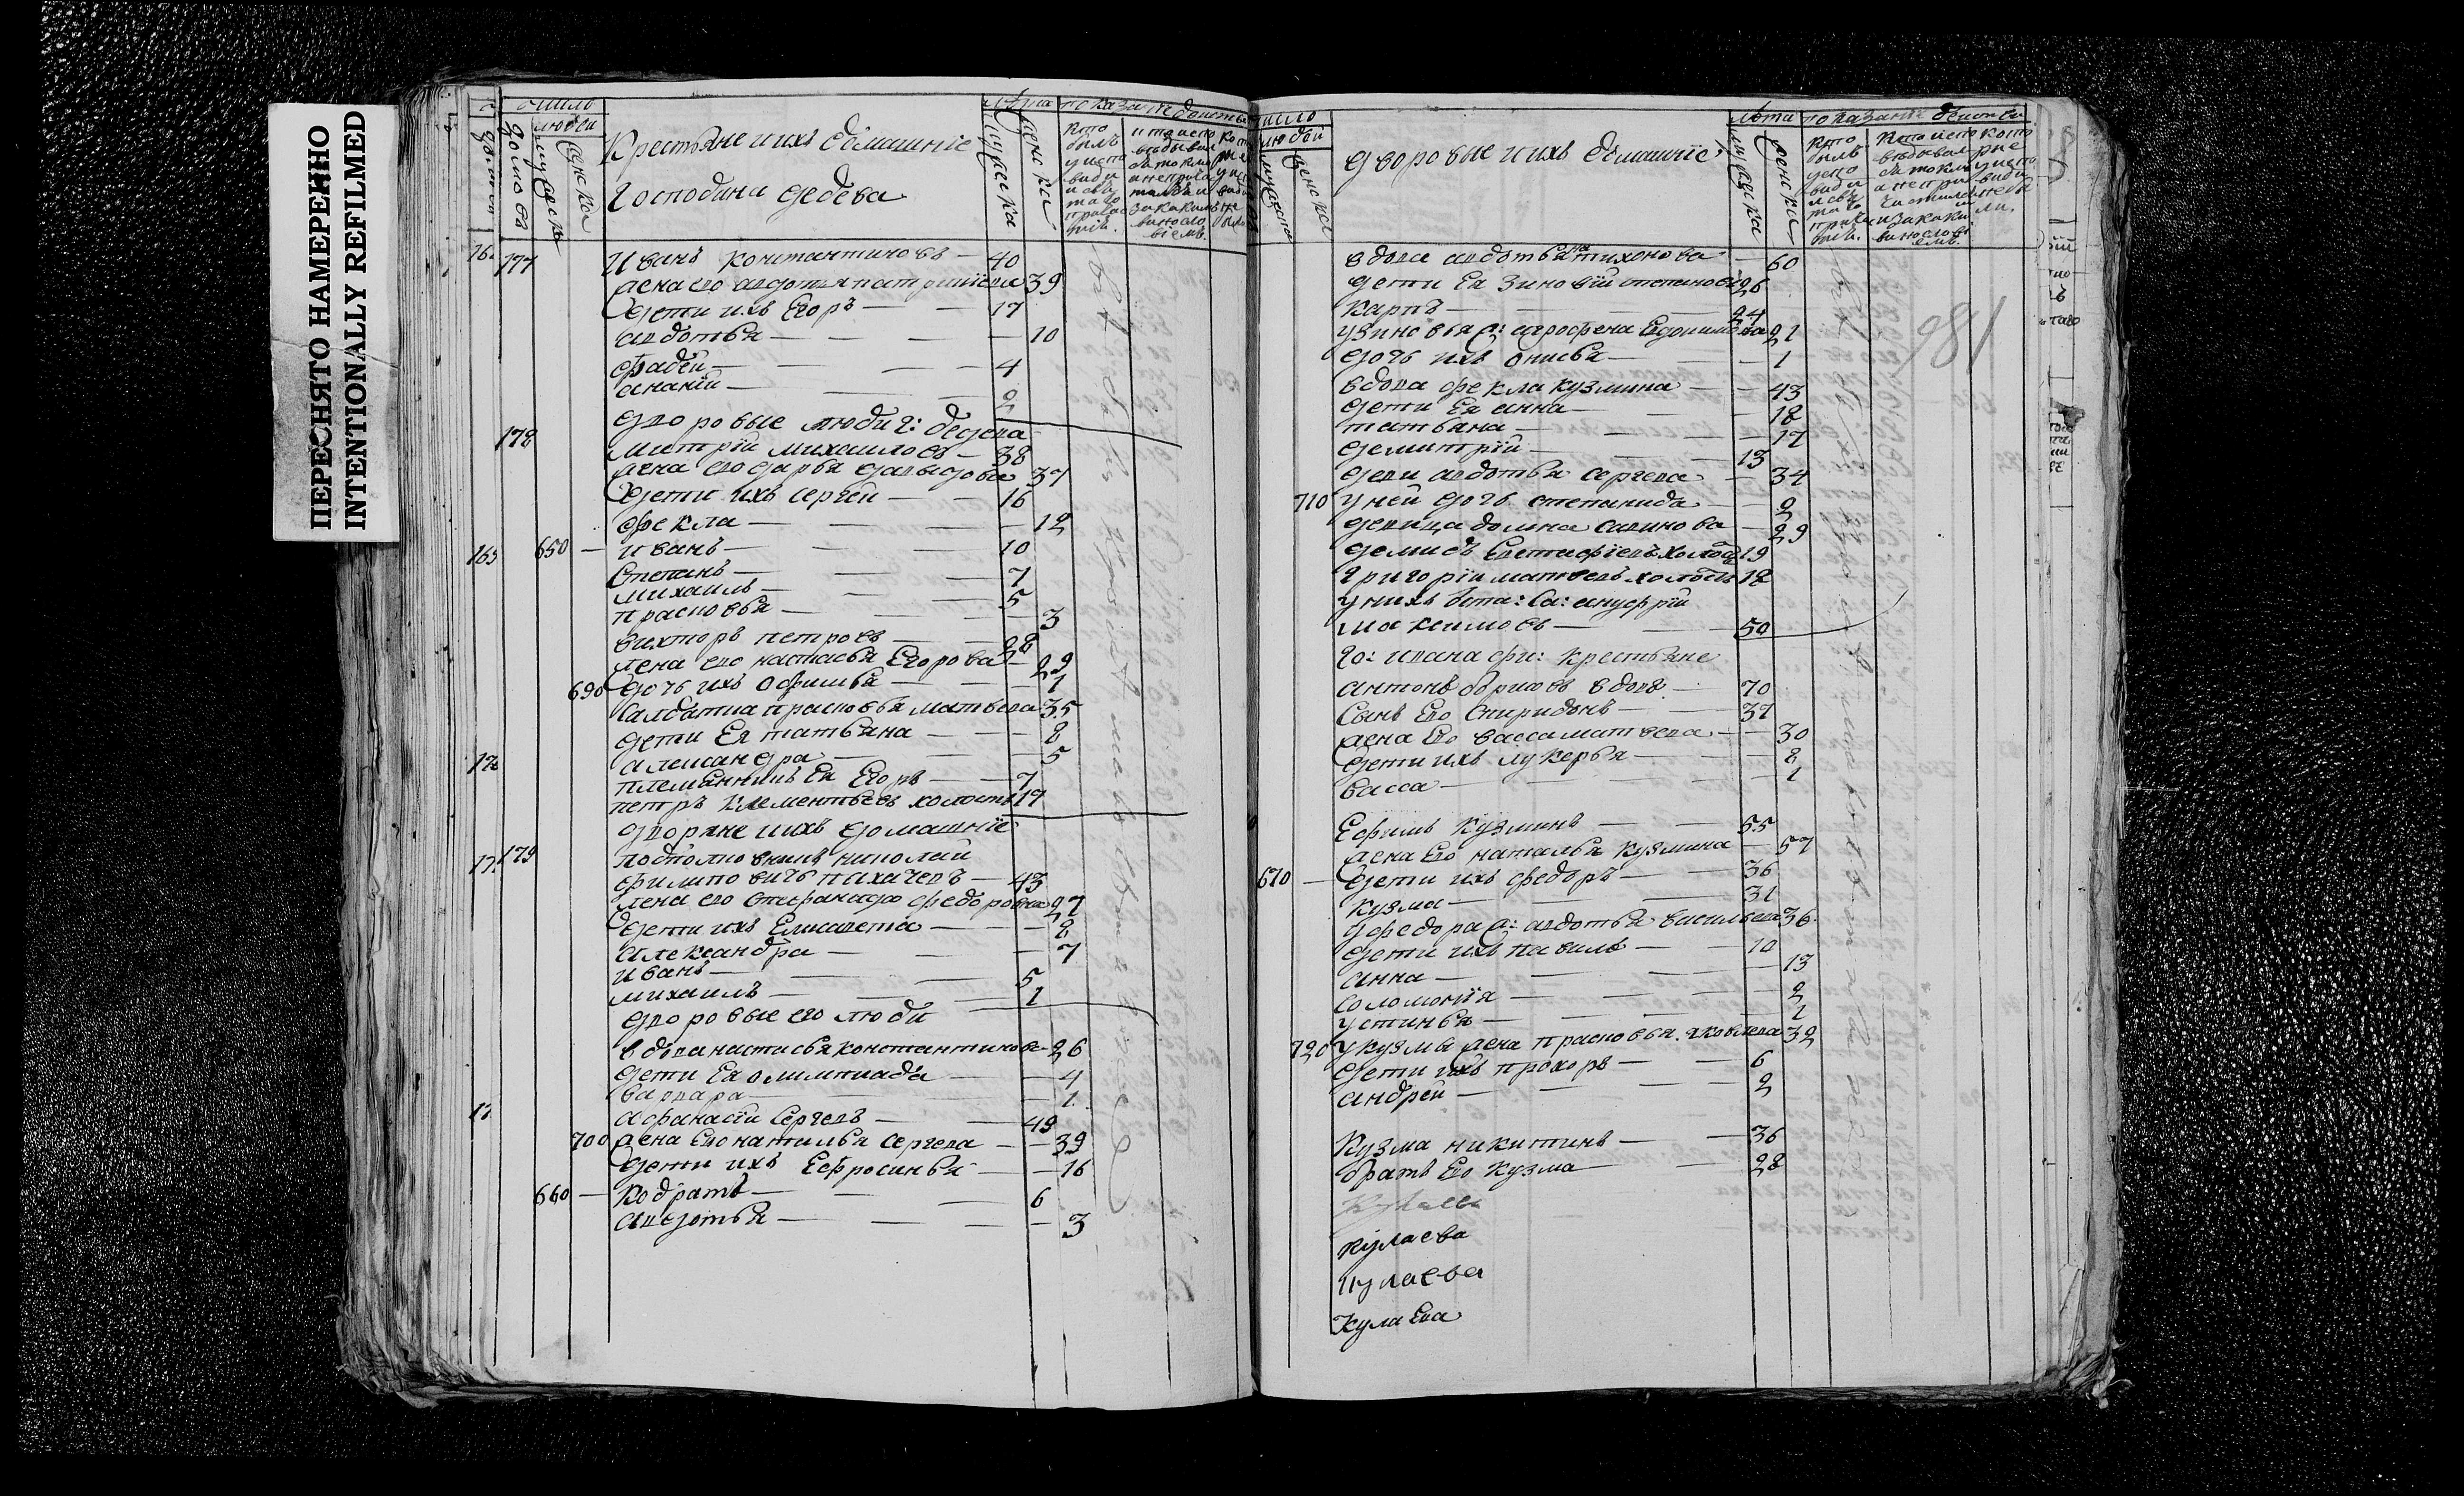 ПЕРЕСНЯТО НАМЕРЕННО
INTENTIONALLY REFILMED
число
людей
домовъ
мужеска
женска
Крестьяне и ихъ домашніе
Господина Дедева
лѣта
показаніе
мужеска
женска
177 Иванъ Константиновъ — 40
жена его авдотья 39
Дети ихъ Егоръ — — 17
авдотья — — — — 10
фадѣй — — — 4
ананій — — — 2
дворовые люди г: дедева
178 митрій михаиловъ — 38
жена его дарья давыдова 37
Дети ихъ сергей — — 16
фекла — — — 12
650 — иванъ — — — 10
Степанъ — — — 7
михаилъ — — — 5
прасковья — — — 3
вихторъ петровъ — — 28
жена его настасья Егорова — 29
690 Дочь ихъ Офимья — — — 1
Салдатка прасковья матвева 35
дети Ея татьяна — — — 8
александра — — — 5
племянникъ Ея Егоръ — — 7
петръ Клементьевъ холостъ 17
дворяне и ихъ домашніе
179 подполковникъ николай
филиповичь пахачевъ — 43
жена его Стефанида федоровна 27
Дети ихъ Елисавета — — — 8
александра — — — 7
иванъ — — — 5
михаилъ — — — 1
дворовые его люди
вдова настасья константинова — 26
дети Ея олимпиада — — 4
варвара — — — 1
афанасій Сергевъ — — 49
700 жена Его наталья сергева — — 39
Дети ихъ Ефросинья — — 16
660 — Кодратъ — — — 6
авдотья — — — — 3
число
людей
мужеска
женска
дворовые и ихъ домашніе
лѣта
показаніе
мужеска
женска
181
вдова авдотья тихонова — 60
дети Ея Зиновій степановъ 26
Карпъ — — — 24
у Зиновья ж: агрофена 21
дочь ихъ Онисья — — — 1
вдова фекла кузмина — — 43
дети Ея анна — — — 18
татьяна — — — — 17
демитрій — — — 13
девка авдотья сергева — 34
710 у ней дочь степанида — — 2
девица домна савинова — 29
демидъ 19
григорій матвевъ холостъ 18
у нихъ
максимовъ — — — 50
го: ивана крестьяне
антонъ борисовъ вдовъ — 70
Сынъ Его Спиридонъ — — 37
жена Его васса матвева — — 30
Дети ихъ лукерья — — — 8
васса — — — — 1
Ефимъ Кузминъ — — 55
жена Его наталья кузмина — 57
670 — Дети ихъ федоръ — — 36
кузма — — — 31
у федора ж: авдотья васильева 36
Дети ихъ павилъ — — 10
анна — — — — 13
соломонія — — — 2
устинья — — — 1
720 у кузмы жена прасковья яковлева 32
Дети ихъ прохоръ — — 6
андрей — — — 2
Кузма никитинъ — — 36
братъ Его кузма — — 28
кулаева
кулаева
Кулаева